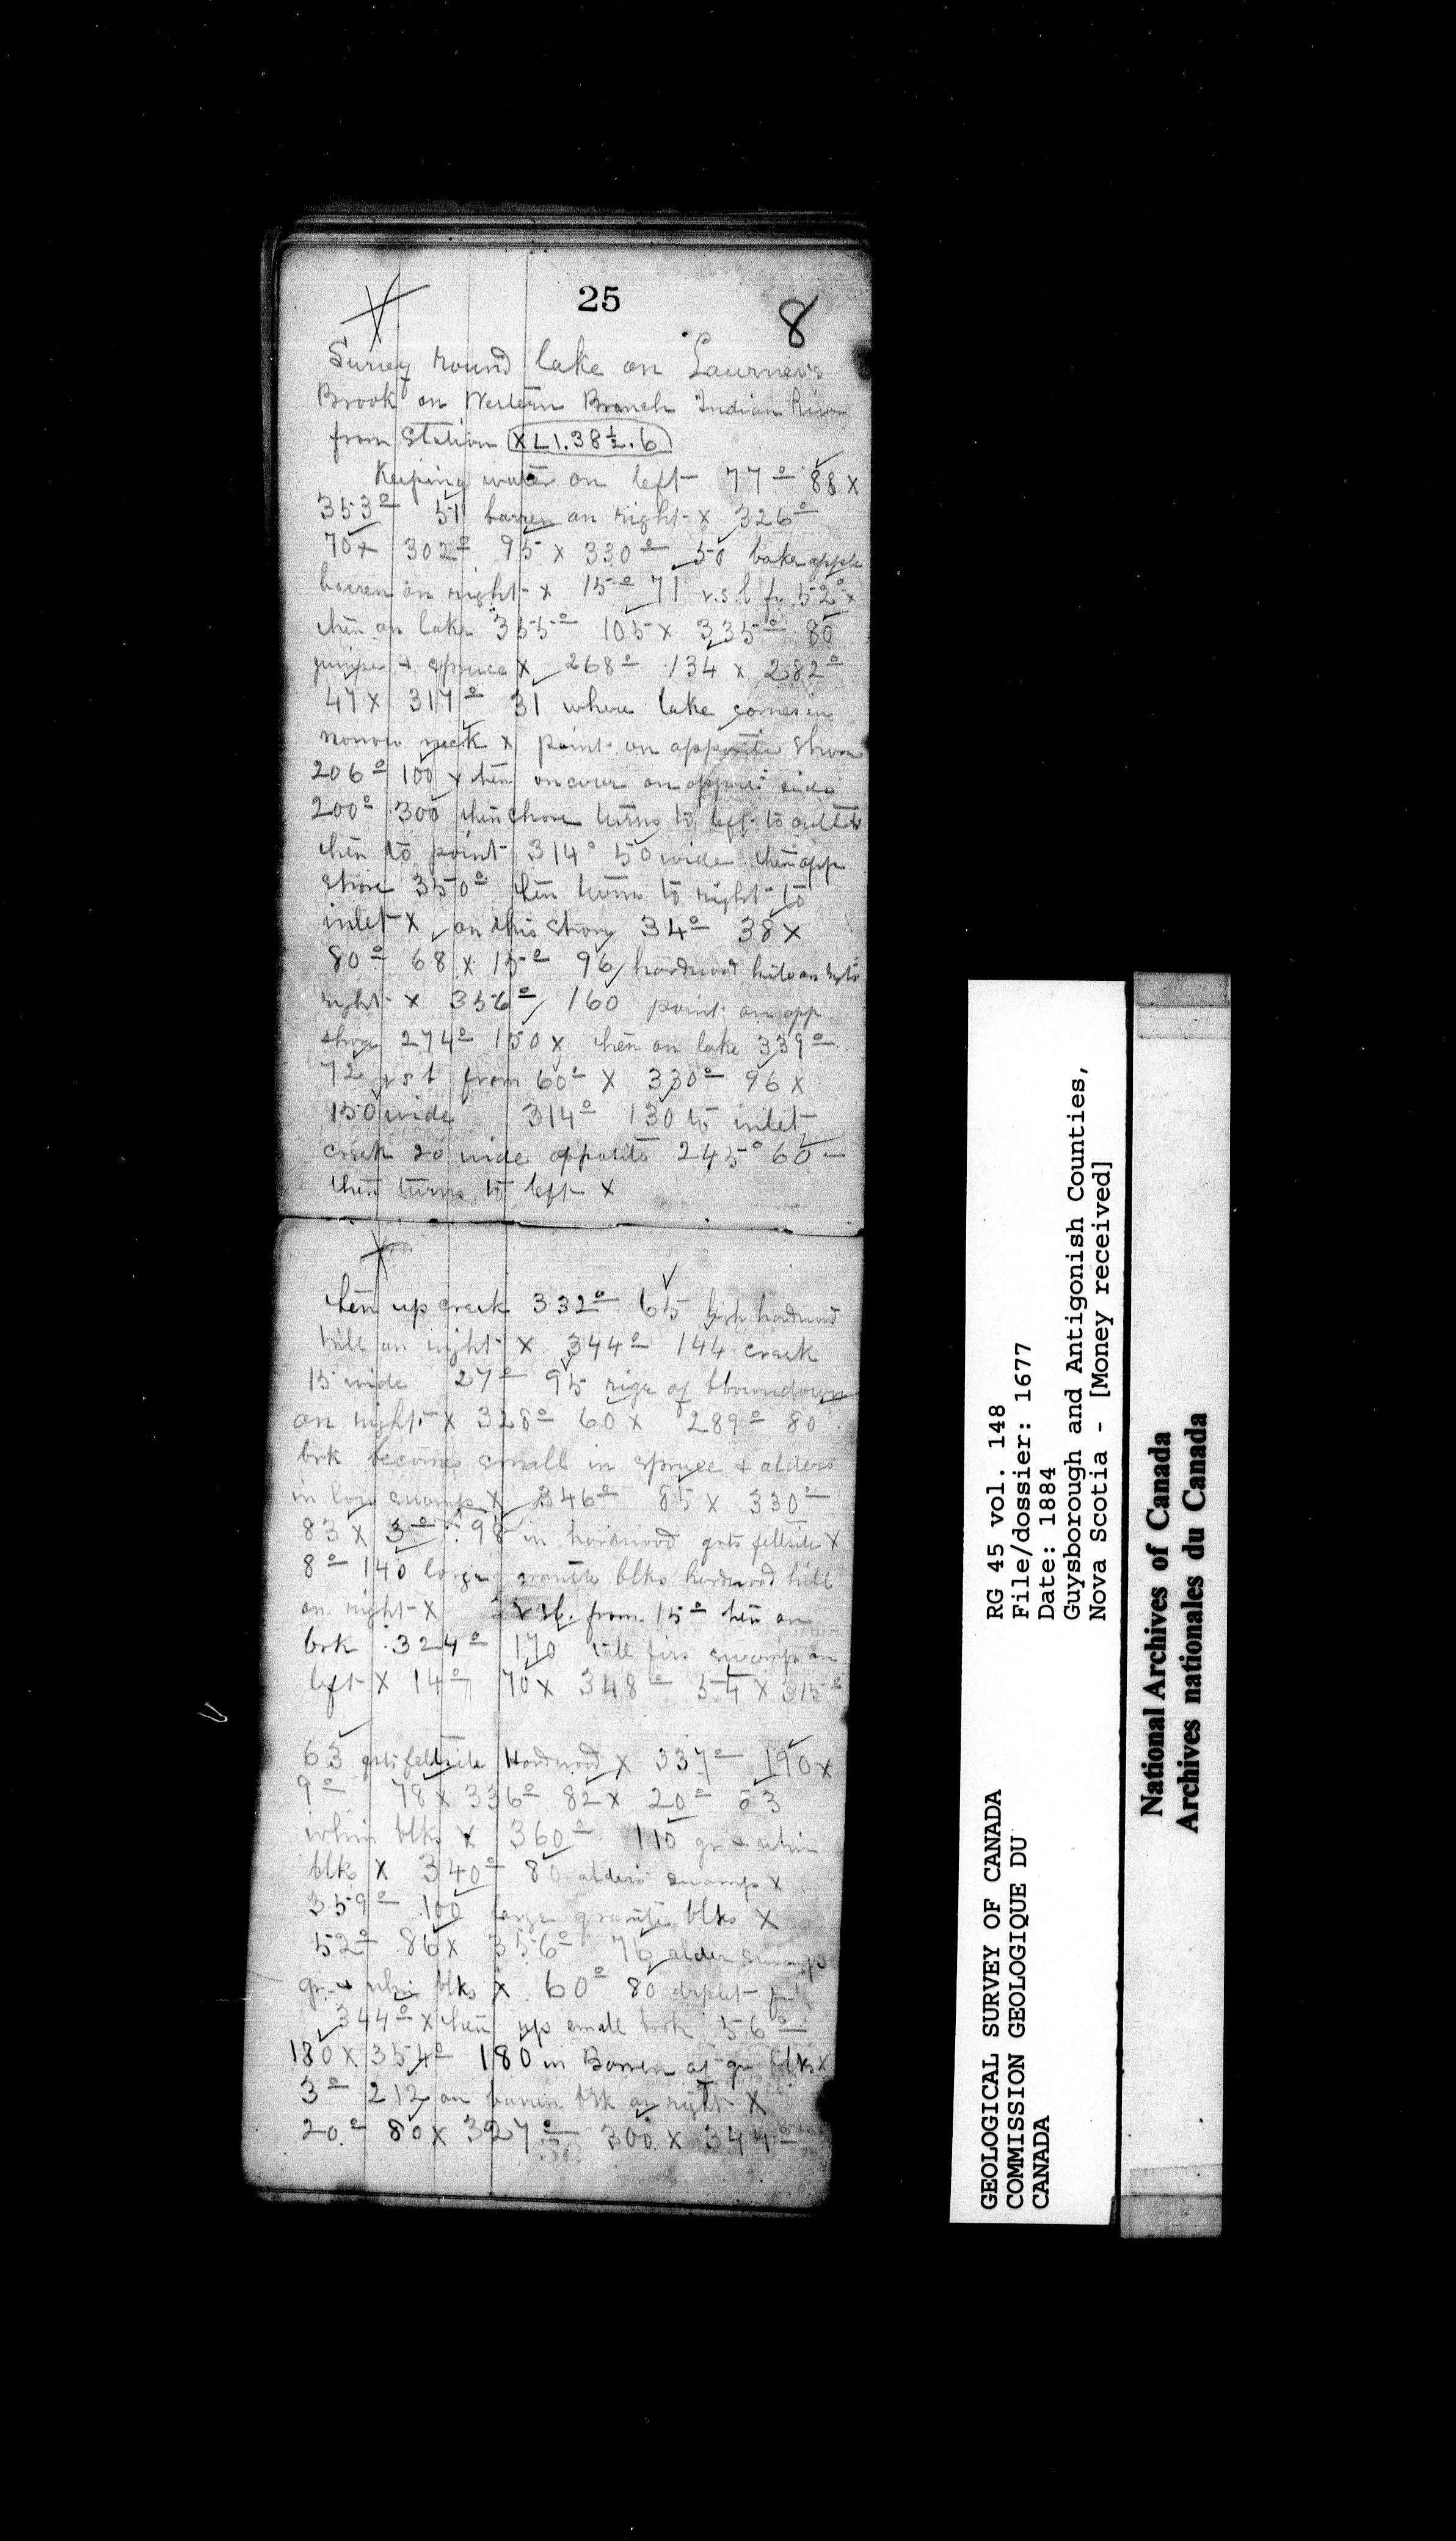 25
8
Survey round lake on
Brook on Western Branch Indian River
from Station XL1.38½.6
Keeping water on left 77° 88 x
353° 51 barren on right x 326°
70 x 302° 95 x 330° 50 bake apple
barren on right x 15° 71 v.s.l fr. 52° x
then on lake 355° 105 x 335° 80
juniper + spruce x 268° 134 x 282°
47 x 317° 31 where lake comes in
narrow neck x point on opposite shore
206° 100 x then on opposite side
200° 300 then shore turns to left to outlet
then to point 314° 50 wide then opp
shore 350° then turns to right to
inlet x on this shore 34° 38 x
80° 68 x 15° 96 hardwood hill on
right x 356° 160 point on opp
shore 274° 150 x then on lake 339°
72 from 60° x 330° 96 x
150 wide 314° 130 to inlet
creek 20 wide opposite 245° 60
then turns to left x
then up creek 332° 65 high hardwood
hill on right x 344° 144 creek
15 wide 27° 95 of
on right x 328° 60 x 289° 80
brk becomes small in spruce + alders
in low swamp x 346° 85 x 330°
83 x 3° 98 in hardwood felsite x
8° 140 large granite blks hardwood hill
on right x from 15° then on
brk 324° 170 tall firs swamp on
left x 14° 70 x 348° 54 x 315°
63 felsite Hardwood x 337° 190 x
9° 78 x 336° 82 x 20° 83
whin blks x 360° 110 gr + whin
blks x 340° 80 alders swamp x
359° 100 large granite blks x
52° 86 x 356° 76 alder swamp
gr + whin blks x 60° 80
344° x then up small brook 56°
180 x 354° 180 in Barren of gr blks x
3° 212 on barren brk on right x
20° 80 x 327° 300 x 344°
GEOLOGICAL SURVEY OF CANADA
COMMISSION GEOLOGIQUE DU
CANADA
RG 45 vol. 148
File/dossier: 1677
Date: 1884
Guysborough and Antigonish Counties,
Nova Scotia - [Money received]
National Archives of Canada
Archives nationales du Canada